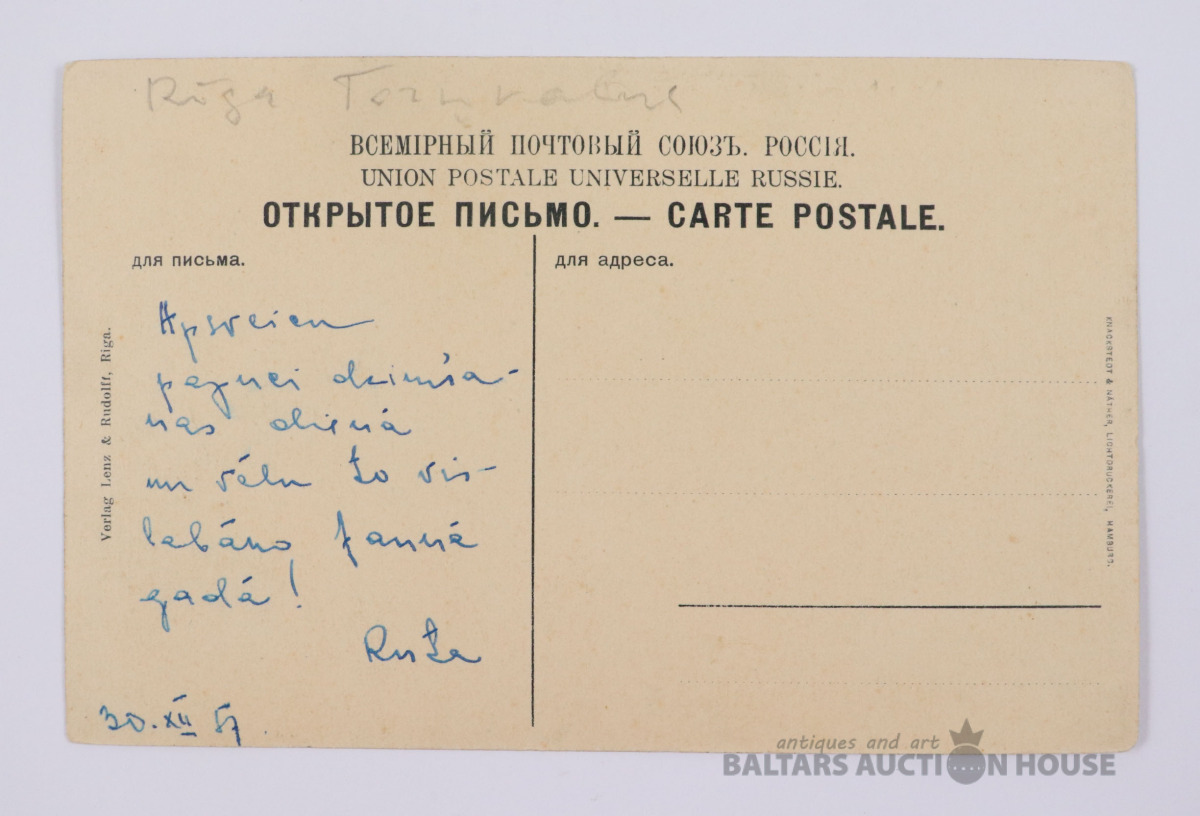 Rīga
ВСЕМІРНЫЙ ПОЧТОВЫЙ СОЮЗЪ. РОССІЯ.
UNION POSTALE UNIVERSELLE RUSSIE.
ОТКРЫТОЕ ПИСЬМО. — CARTE POSTALE.
для письма.
для адреса.
Apsveicu
dzimša-
nas dienā
un vēlu to vis-
labāko Jaunā
gadā!
30. XII 57
Verlag Lenz & Rudolff, Riga.
KNACKSTEDT & NÄTHER, LICHTDRUCKEREI, HAMBURG.
antiques and art
BALTARS AUCTION HOUSE